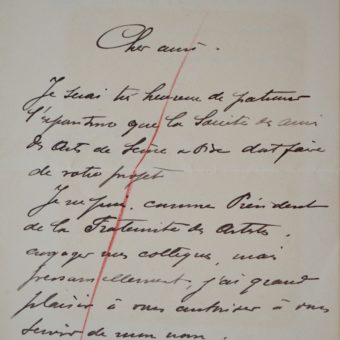 Cher ami.
Je serai très heureux de
que la Société des amis
des Arts de Seine & Oise doit faire
de votre projet
Je ne puis, comme Président
de la Fraternité des Artistes,
engager mes collègues, mais
personnellement, j'ai grand
plaisir à vous autoriser à vous
servir de mon nom.